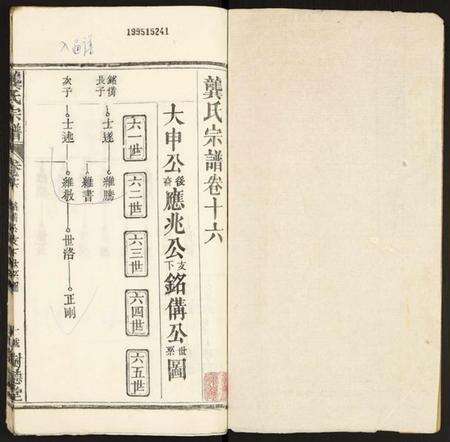 199515241
龔氏宗譜卷十六
大申公後裔應兆公支下銘備公世系圖
六一世
六二世
六三世
六四世
六五世
銘備長子
士遂
維勝
維書
次子
士述
維敬
世洛
正剛
龔氏宗譜